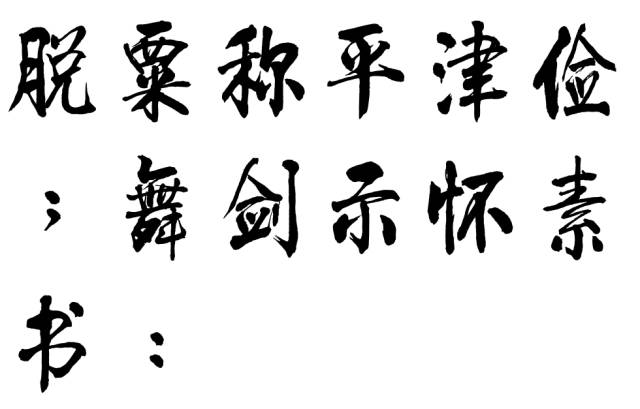 脱粟称平津俭
；舞剑示怀素
书：